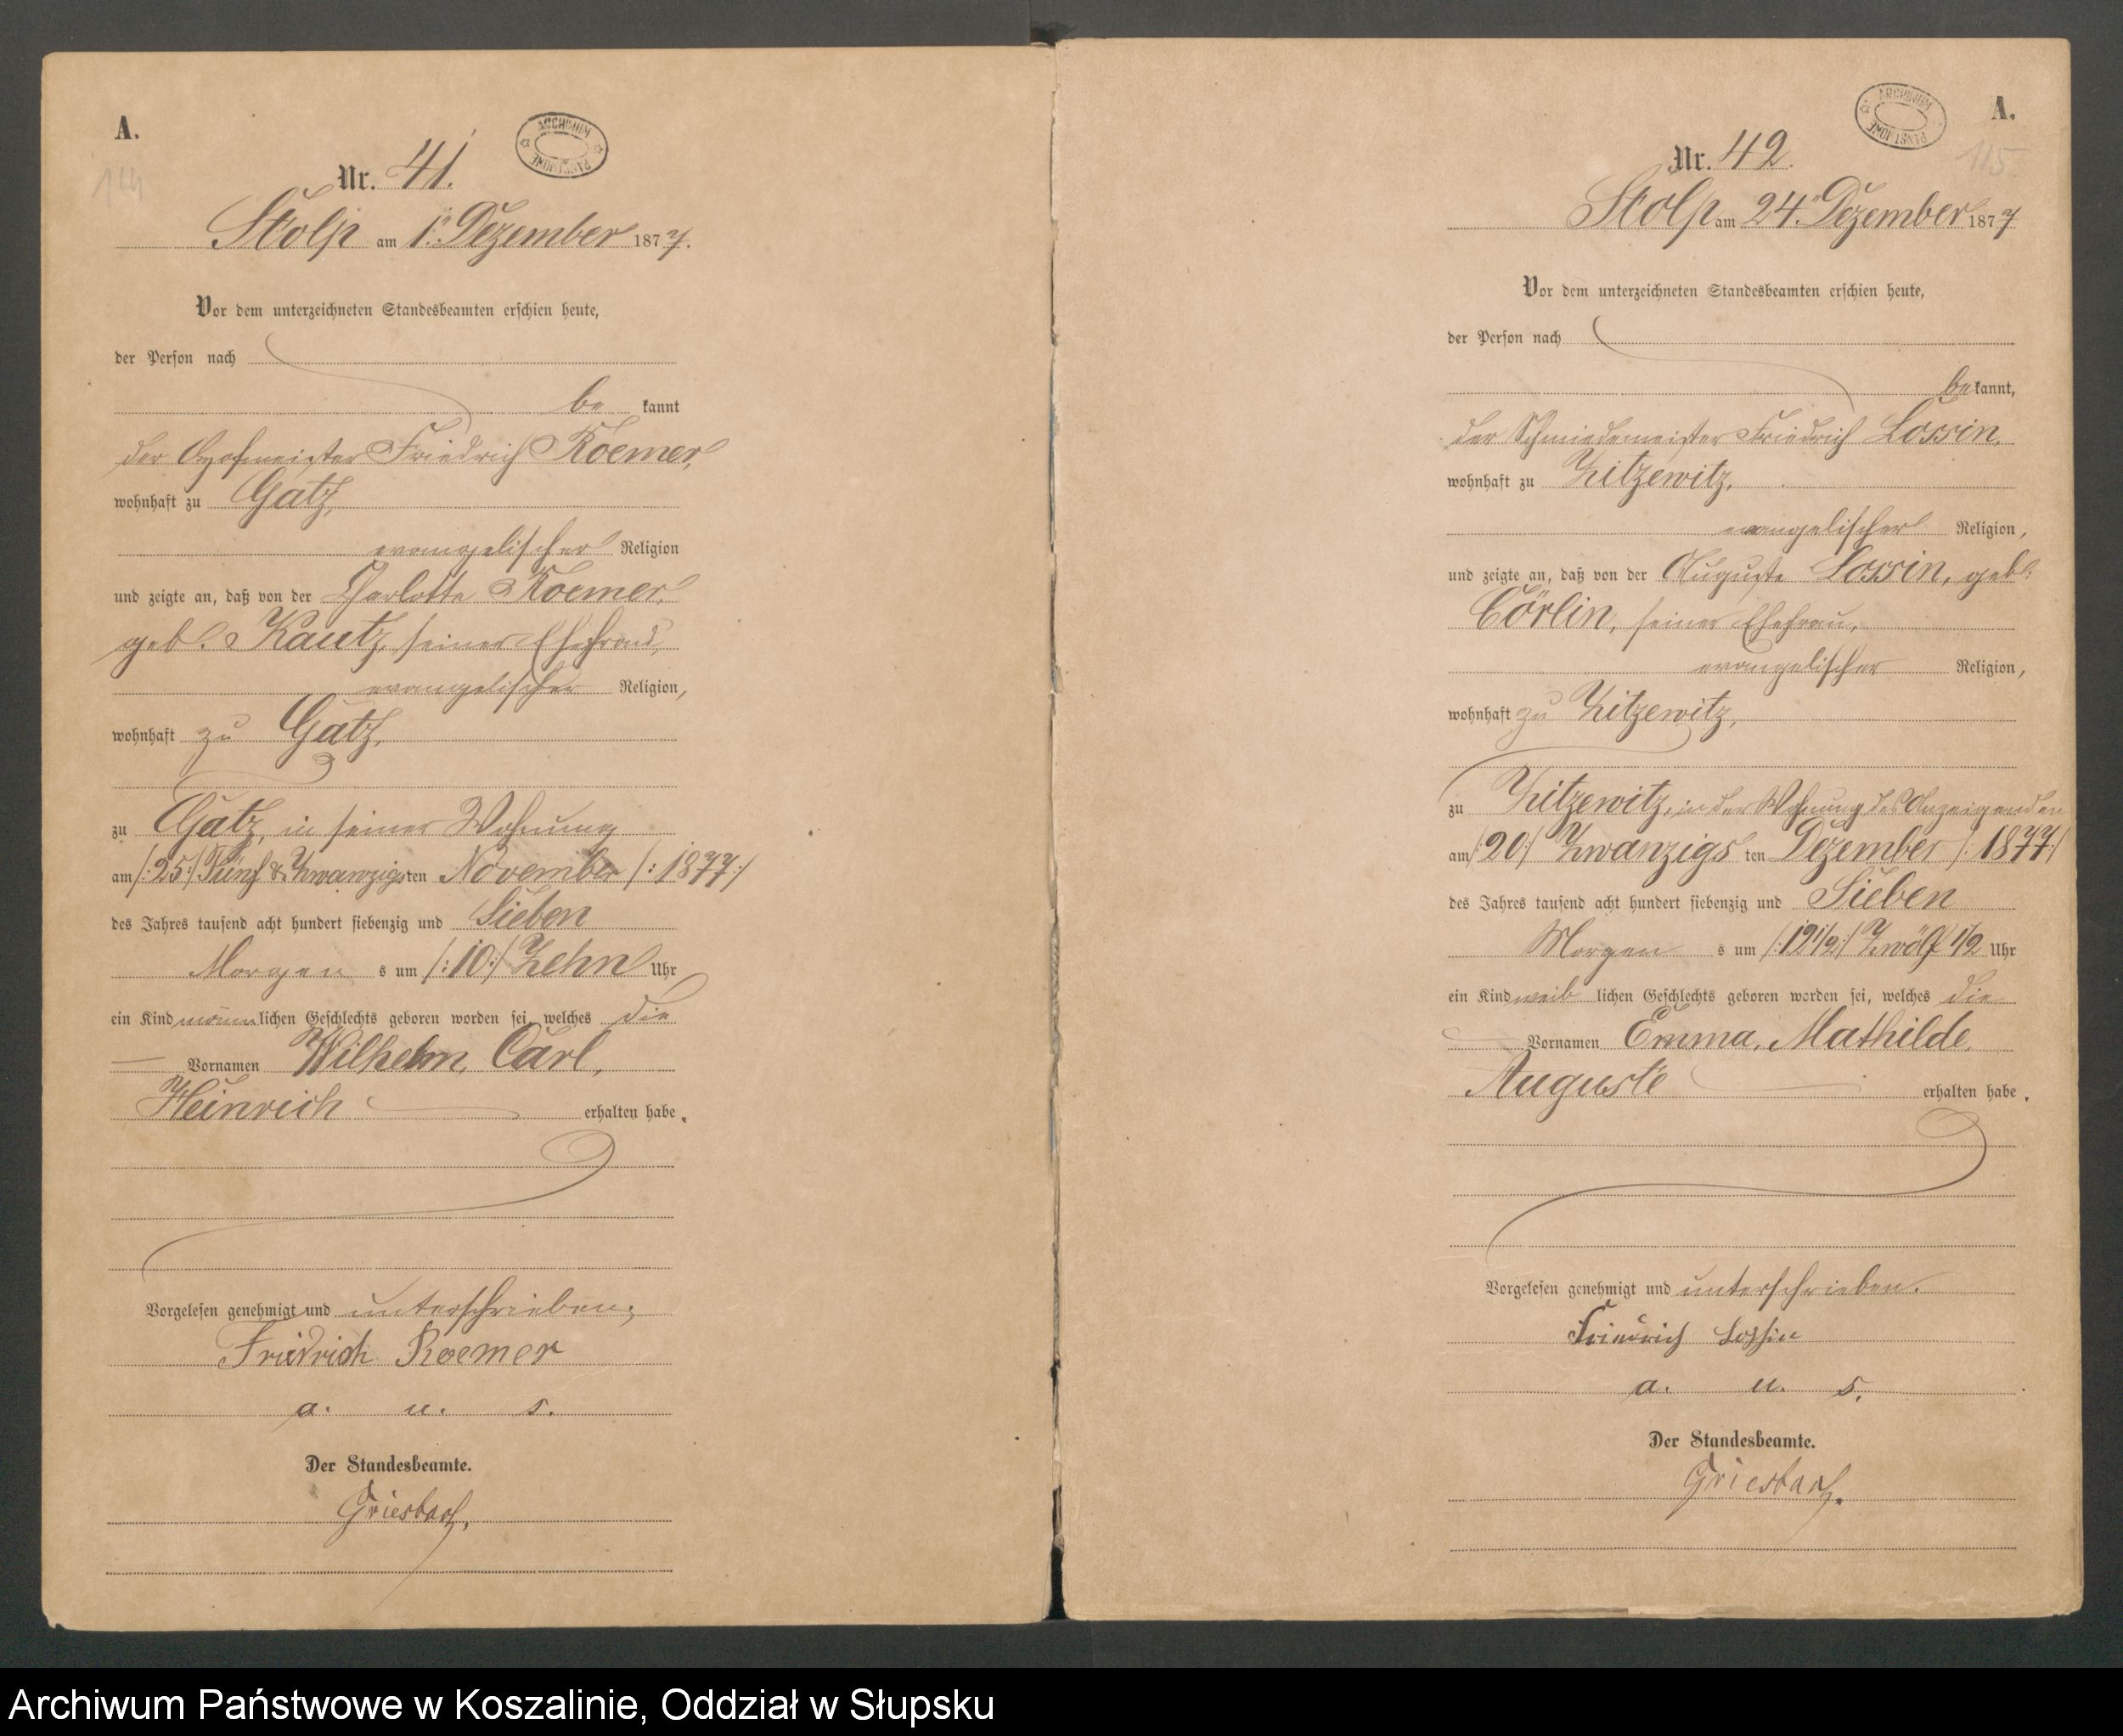 A.
Nr. 41.
ARCHIWUM PAŃSTWOWE
Stolp am 1. Dezember 1877.
Vor dem unterzeichneten Standesbeamten erschien heute,
der Person nach
be kannt
der Hofmeister Friedrich Roemer,
wohnhaft zu Gatz,
evangelischer Religion
und zeigte an, daß von der Charlotte Roemer,
geb. Kautz, seiner Ehefrau,
evangelischer Religion,
wohnhaft zu Gatz,
zu Gatz, in seiner Wohnung
am /:25:/ Fünf & Zwanzigsten November /:1877:/
des Jahres tausend acht hundert siebenzig und Sieben
Morgen s um /:10:/ Zehn Uhr
ein Kind männlichen Geschlechts geboren worden sei, welches die
Vornamen Wilhelm, Carl,
Heinrich erhalten habe.
Vorgelesen genehmigt und unterschrieben;
Friedrich Roemer
a. u. s.
Der Standesbeamte.
Griesbach.
A.
115
ARCHIWUM PAŃSTWOWE
Nr. 42.
Stolp am 24. Dezember 1877
Vor dem unterzeichneten Standesbeamten erschien heute,
der Person nach
bekannt,
der Schmiedemeister Friedrich Lossin,
wohnhaft zu Zitzewitz,
evangelischer Religion,
und zeigte an, daß von der Auguste Lossin, geb.
Cörlin, seiner Ehefrau,
evangelischer Religion,
wohnhaft zu Zitzewitz,
zu Zitzewitz, in der Wohnung des Anzeigenden
am /:20:/ Zwanzigs ten Dezember /:1877:/
des Jahres tausend acht hundert siebenzig und Sieben
Morgen s um /:12 1/2:/ Zwölf 1/2 Uhr
ein Kind weib lichen Geschlechts geboren worden sei, welches die
Vornamen Emma, Mathilde,
Auguste erhalten habe.
Vorgelesen genehmigt und unterschrieben.
Friedrich Lossin
a. u. s.
Der Standesbeamte.
Griesbach.
Archiwum Państwowe w Koszalinie, Oddział w Słupsku